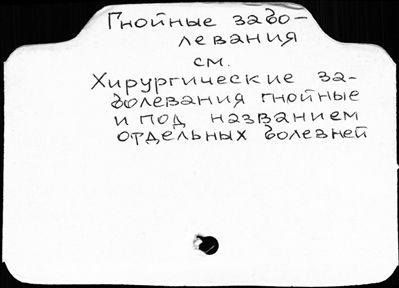 Гнойные забо-
левания
см.
Хирургические за-
болевания гнойные
и под названием
отдельных болезней